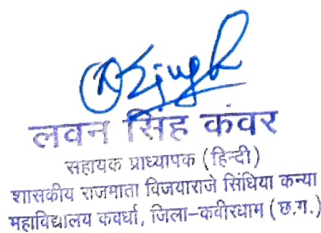 लवन सिंह कंवर
सहायक प्राध्यापक (हिन्दी)
शासकीय राजमाता विजयाराजे सिंधिया कन्या
महाविद्यालय कवर्धा, जिला-कबीरधाम (छ.ग.)